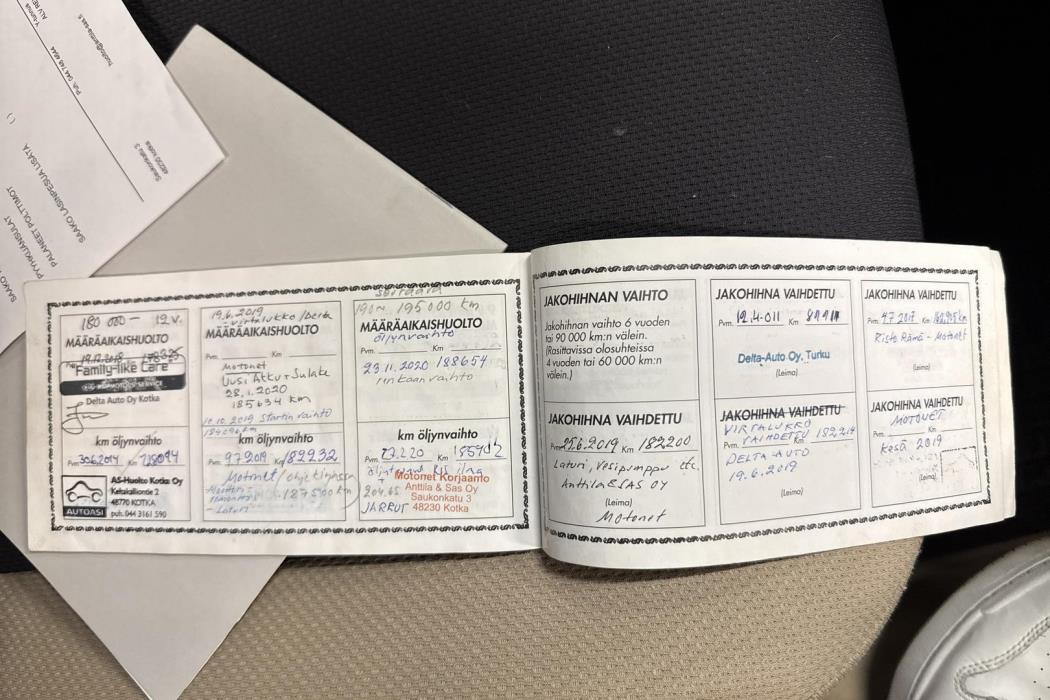 ALV RE
Y-tunnus
Puh. 044 748 4644
huolto@anttila-sas.f
Saukonkatu 3
48230 Kotka
( )
SAAKO LASINPESUA LISÄTÄ
PALANEET POLTTIMOT
PYYHKIJÄNSULAT
SAAKO
180 000 - 12 v.
MÄÄRÄAIKAISHUOLTO
19.12.2018
"Family-like Care"
Delta Auto Kotka
km öljynvaihto
Pvm. 30.6.2014 Km
AS-Huolto Kotka Oy
Keltakalliontie 2
48770 KOTKA
puh. 044 3161 590
AUTOASI
19.6.2019
Virtalukko/Delta
MÄÄRÄAIKAISHUOLTO
Pvm. Km
Motonet
Uusi Akku + Sulake
28.1.2020
185634 km
10.10.2019 Startin vaihto
184096 km
km öljynvaihto
Pvm. 9.7.2019 Km 182932
Motonet/
187500 km
- Laturi
195000 km
MÄÄRÄAIKAISHUOLTO
öljynvaihto
Pvm. Km
23.11.2020 188654
renkaanvaihto
km öljynvaihto
Pvm. Km
Motonet Korjaamo
Anttila & Sas Oy
Saukonkatu 3
48230 Kotka
JARRUT
JAKOHIHNAN VAIHTO
Jakohihnan vaihto 6 vuoden
tai 90 000 km:n välein.
(Rasittavissa olosuhteissa
4 vuoden tai 60 000 km:n
välein.)
JAKOHIHNA VAIHDETTU
Pvm. 12.4.011 Km
Delta-Auto Oy, Turku
(Leima)
JAKOHIHNA VAIHDETTU
Pvm. 4.7.2017 Km
Risto Rämä - Motonet
(Leima)
JAKOHIHNA VAIHDETTU
Pvm. 25.6.2019 Km 182200
Laturi, Vesipumppu etc.
Anttila & SAS OY
(Leima)
Motonet
JAKOHIHNA VAIHDETTU
VIRTALUKKO
Pvm. VAIHDETTU Km 182214
DELTA-AUTO
19.6.2019
(Leima)
JAKOHIHNA VAIHDETTU
MOTONET
Pvm. Km
Kesä 2019
(Leima)